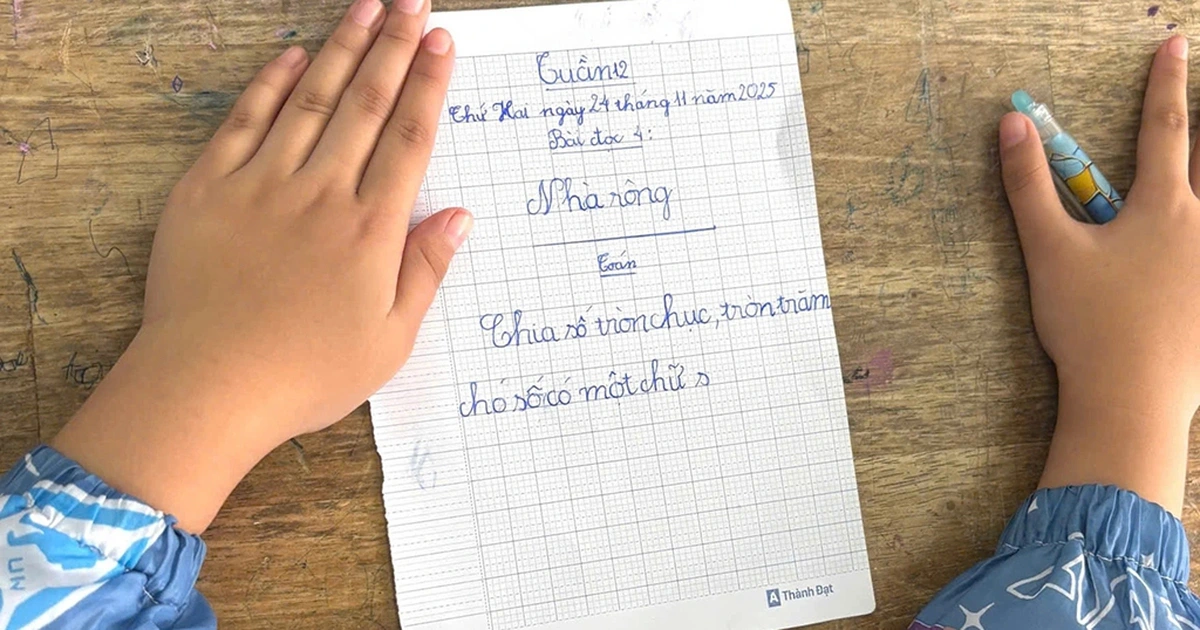 Tuần 12
Thứ Hai ngày 24 tháng 11 năm 2025
Bài đọc 4:
Nhà rông
Toán
Chia số tròn chục, tròn trăm
chó số có một chữ s
A Thành Đạt
UN